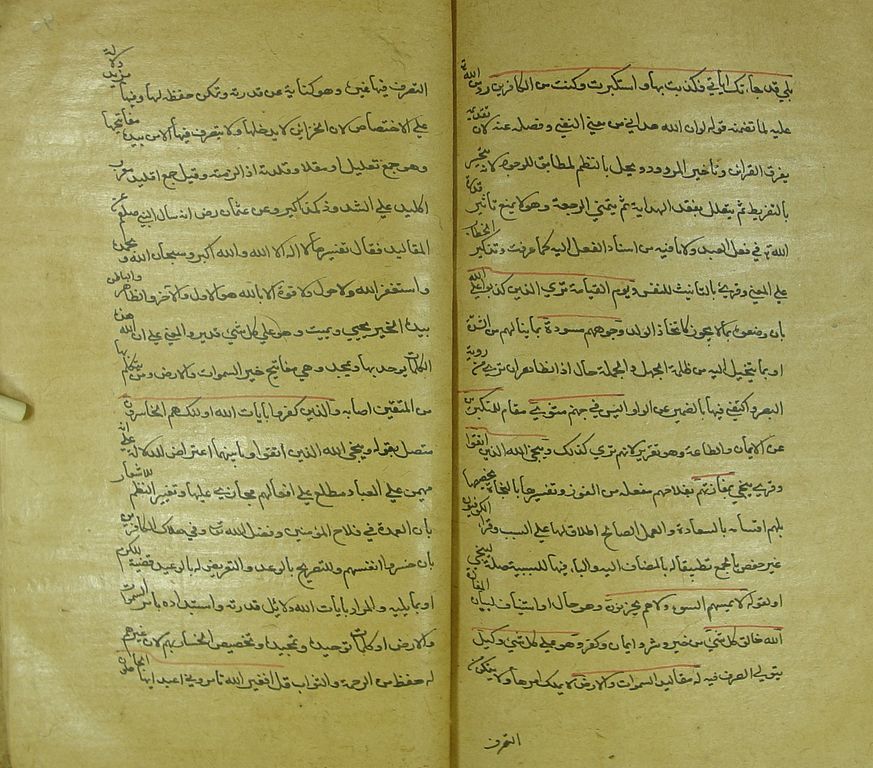 بلي قد جاءتك اياتي فكذبت بها واستكبرت وكنت من الكافرين رد من الله
عليه لما تضمنه قوله لو ان الله هداني من معني النفي وفصله عنه لان تقديمه
يفرق القراين وتاخير المردود يخل بالنظم المطابق للوجود لانه يتحسر
بالتفريط ثم يتعلل بفقد الهداية ثم يتمني الرجعة وهو لا يمنع تاثير قدرة
الله تع في فعل العبد ولا ما فيه من اسناد الفعل اليه كما عرفت وتذكير الخطاب
علي المعني وقرئ بالتانيث للنفس ويوم القيامة تري الذين كذبوا علي الله
بان وصفوه بما لا يجوز كاتخاذ الولد وجوههم مسودة بما ينالهم من الشدة
او بما يتخيل اليه من ظلمة الجهل والجملة حال اذ الظاهر ان تري من روية
البصر واكتفي فيها بالضمير عن الواو اليس في جهنم مثوي مقام للمتكبرين
عن الايمان والطاعة وهو تقرير لانهم تري كذلك وينجي الله الذين اتقوا
وقرئ ينجي بمفازتهم بفلاحهم مفعلة من الفوز وتفسيرها بالنجاة تخصيصها
باهم اقسامه بالسعادة والعمل الصالح اطلاق لها علي السبب وقرا الكوفيون
غير حفص بالجمع تطبيقا له بالمضاف اليه والباء فيها للسببية صلة لينجي
او لقوله لا يمسهم السوء ولا هم يحزنون وهو حال او استيناف لبيان المفازة
الله خالق كل شي من خير وشر وايمان وكفر وهو علي كل شي وكيل
يتولي التصرف فيه له مقاليد السموات والارض لا يملك امرها ولا يتمكن من
التصرف
التصرف فيها غيره وهو كناية عن قدرته وتمكن حفظه لها وفيها مزيد دلالة
علي الاختصاص لان الخزاين لا يدخلها ولا يتصرف فيها الا من بيده مفاتيحها
وهو جمع مقليد او مقلاد من قلدته اذ الزمته وقيل جمع اقليد معرب
اكليد علي الشذوذ كمذاكير وعن عثمان رض انه سال النبي صلعم عن
المقاليد فقال تفسيرها لا اله الا الله والله اكبر وسبحان الله وبحمده
واستغفر الله ولا حول ولا قوة الا بالله هو الاول والاخر والظاهر والباطن
بيده الخير يحيي ويميت وهو علي كل شي قدير والمعني علي ان لله هذه
الكلمات يوحد بها ويمجد وهي مفاتيح خير السموات والارض من تكلم بها
من المتقين اصابه والذين كفروا بايات الله اولئك هم الخاسرون
متصل بقوله وينجي الله الذين اتقوا وما بينهما اعتراض للدلالة علي انه
مهيمن علي العباد مطلع علي افعالهم مجازيهم عليها وتغيير النظم للاشعار
بان العمدة في فلاح المؤمنين وفضل الله تع وفي هلاك الكافرين
بان خسروا انفسهم وللتصريح بالوعد والتعريض له بالوعيد قضية للكرم
او بما يليه والمراد بايات الله دلايل قدرته واستبداده بامر السموات
والارض او كلمات توحيده وتمجيده وتخصيص الخسار بهم لان غيرهم
له حفظ من الرحمة والثواب قل افغير الله تامروني اعبد ايها الجاهلون